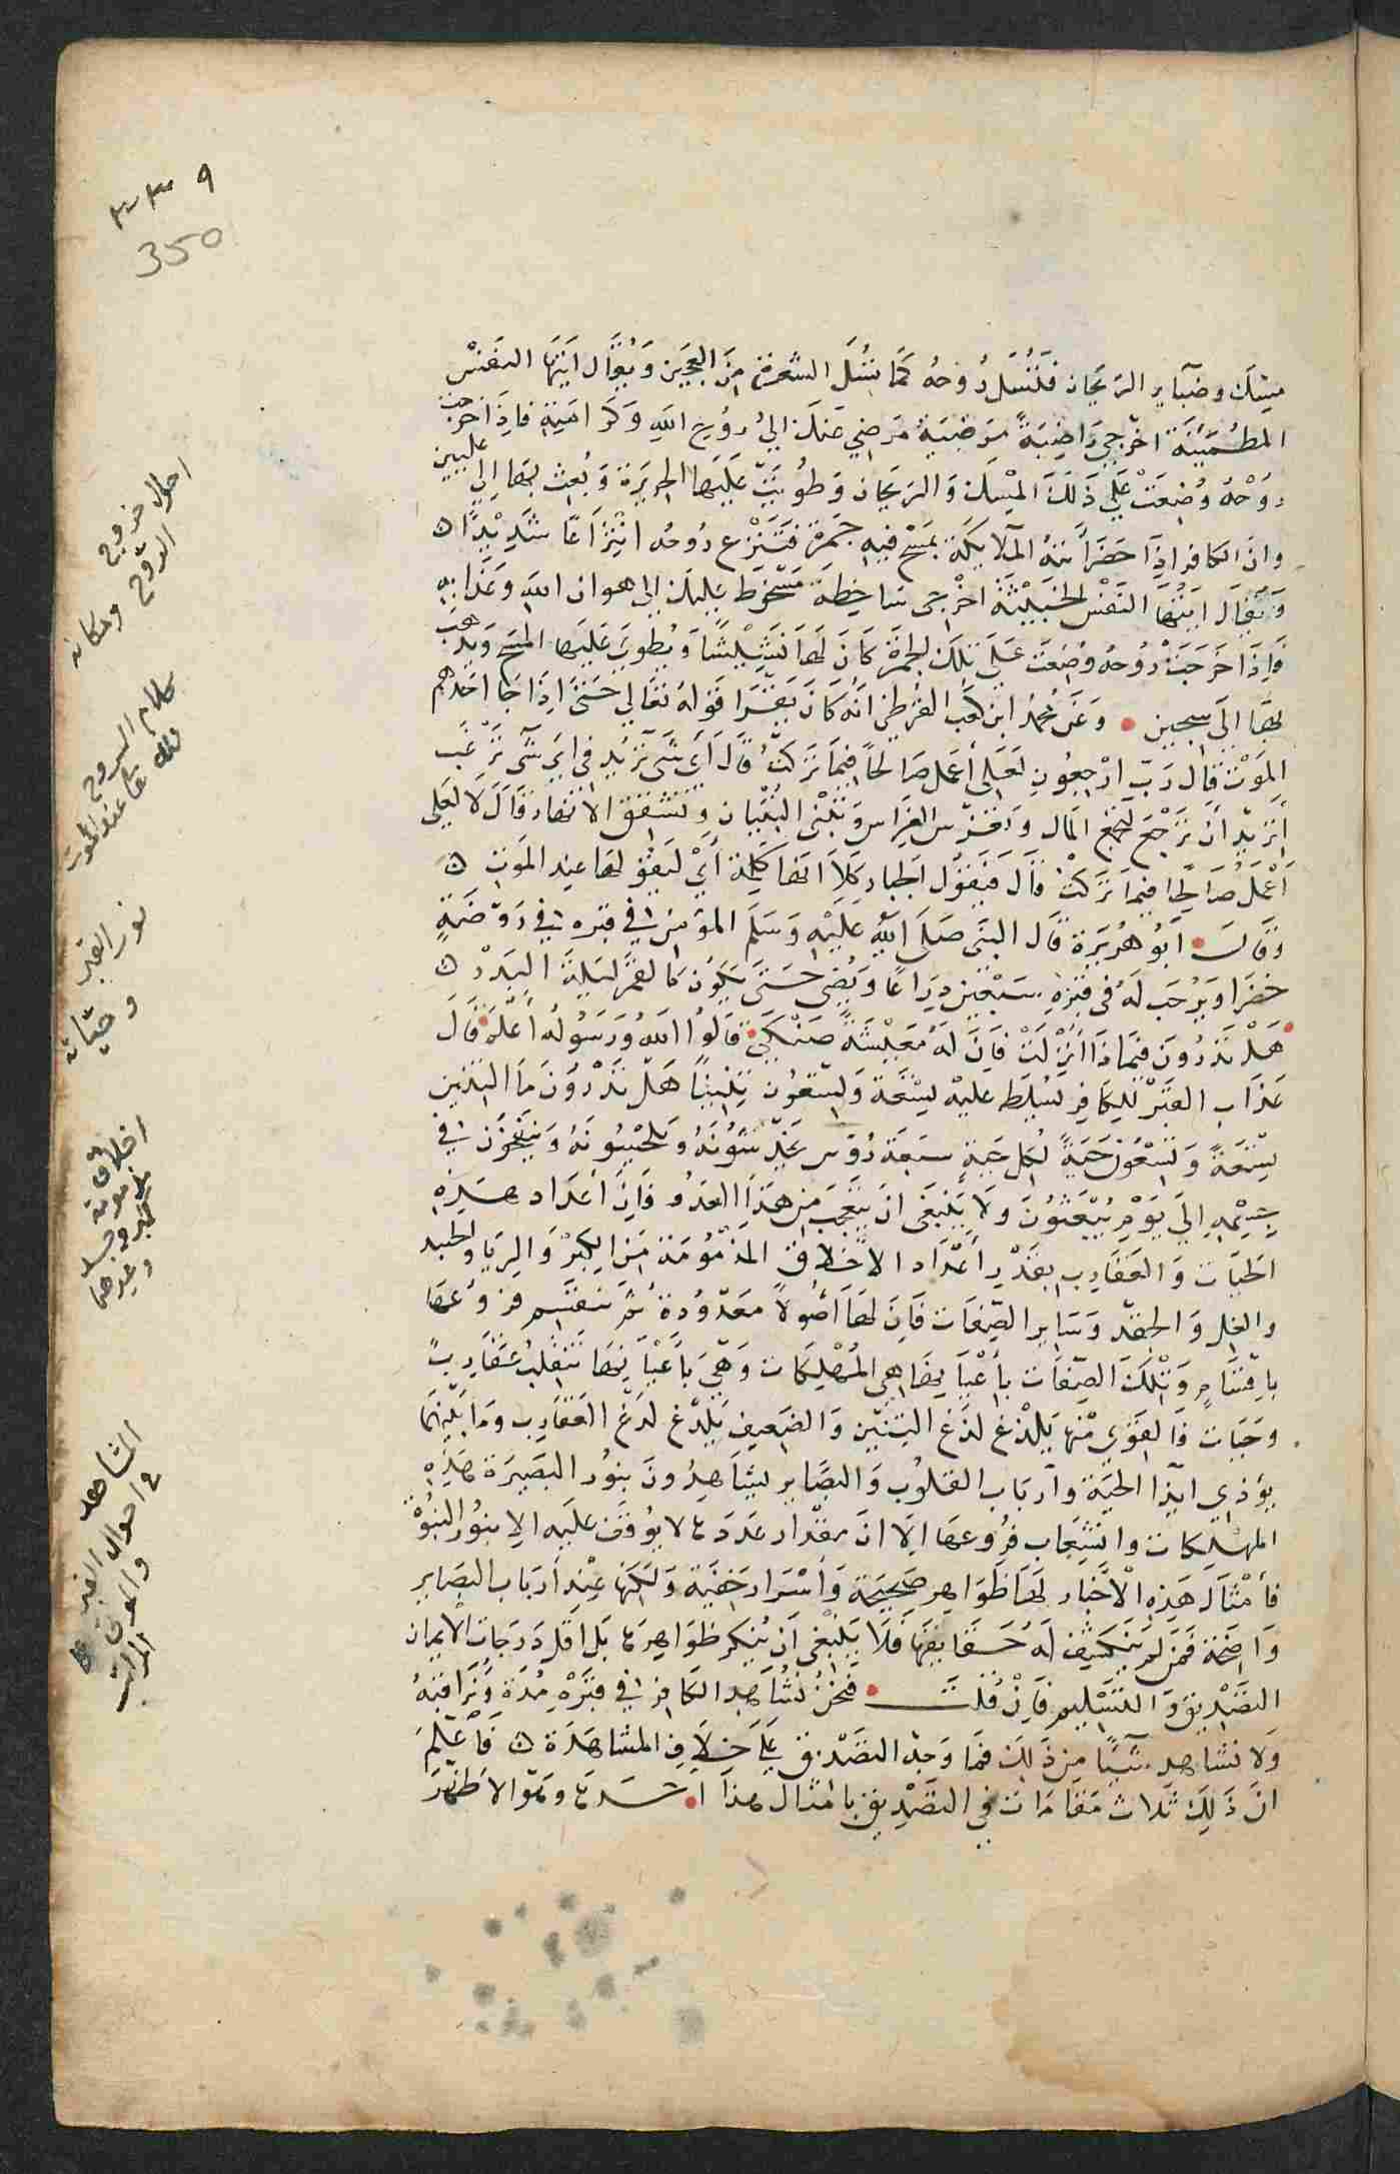 ٣٣٩
350
مسك وضباير الريحان فتسل روحه كما تسل الشعرة من العجين ويقال ايتها النفس
المطمئنة اخرجي راضية مرضية مرضي عنك الي روح الله وكرامته فاذا اخرجت
روحه وضعت علي ذلك المسك والريحان وطويت عليها الحريرة وبعث بها الي عليين
وان الكافر اذا حضر اتته الملايكة بمسح فيه جمرة فتنزع روحه انتزاعا شديدا ه
ويقال ايتها النفس الخبيثة اخرجي ساخطة مسخوط عليك الي هوان الله وعذابه
فاذا خرجت روحه وضعت علي تلك الجمرة كان لها نشيشا ويطوي عليها المسح ويذهب
بها الي سجين • وعن محمد ابن كعب القرظي انه كان يقرا قوله تعالي حتي اذا جا احدهم
الموت قال رب ارجعون لعلي أعمل صالحا فيما تركت قال أي شي تريد في اي شي ترغب
أتريد أن ترجع لتجمع المال وتغرس الغراس وتبني البنيان وتشقق الانهار قال لا لعلي
أعمل صالحا فيما تركت قال فيقول الجبار كلا انها كلمة أي ليقولنها عند الموت ه
وقال • ابو هريرة قال النبي صلي الله عليه وسلم المؤمن في قبره في روضة
خضرا ويرحب له في قبره سبعين ذراعا ويضي حتي يكون كالقمر ليلة البدر ه
هل تدرون فيماذا أنزلت فان له معيشة ضنكي قالوا الله ورسوله أعلم قال
عذاب القبر للكافر يسلط عليه تسعة وتسعون تنينا هل تدرون ما التنين
تسعة وتسعون حية لكل حية سبعة رؤس يخدشونه ويلحسونه وينفخون في
جسمه الي يوم يبعثون ولا ينبغي ان يتعجب من هذا العدد فان أعداد هذه
الحيات والعقارب بقدر أعداد الاخلاق المذمومة من الكبر والريا والحسد
والغل والحقد وساير الصفات فان لها أصولا معدودة ثم تنقسم فروعها
باقسام وتلك الصفات بأعيانها هي المهلكات وهي بأعيانها تنقلب عقارب
وحيات فالقوي منها يلدغ لدغ التنين والضعيف يلدغ لدغ العقارب وما بينهما
يؤذي ايذا الحية وأرباب القلوب والبصاير يشاهدون بنور البصيرة هذه
المهلكات وانشعاب فروعها الا ان مقدار عددها لا يوقف عليه الا بنور النبوة
فأمثال هذه الأخبار لها ظواهر صحيحة وأسرار خفية ولكنها عند أرباب البصاير
واضحة فمن لم ينكشف له حقايقها فلا ينبغي ان ينكر ظواهرها بل اقل درجات الايمان
التصديق والتسليم فان قلت • فنحن نشاهد الكافر في قبره مدة ونراقبه
ولا نشاهد شيئا من ذلك فما وجه التصديق علي خلاف المشاهدة ه فاعلم
ان ذلك ثلاث مقامات في التصديق بامثال هذا ا• حدها وهو الاظهر
احوال خروج
الروح ومكانه
كلام الروح
لله تعا عند الموت
نور القبر
وحياته
اخلاق
مذمومة
كبر وحسد
وغيرهما
المشاهد
في احوال القبر